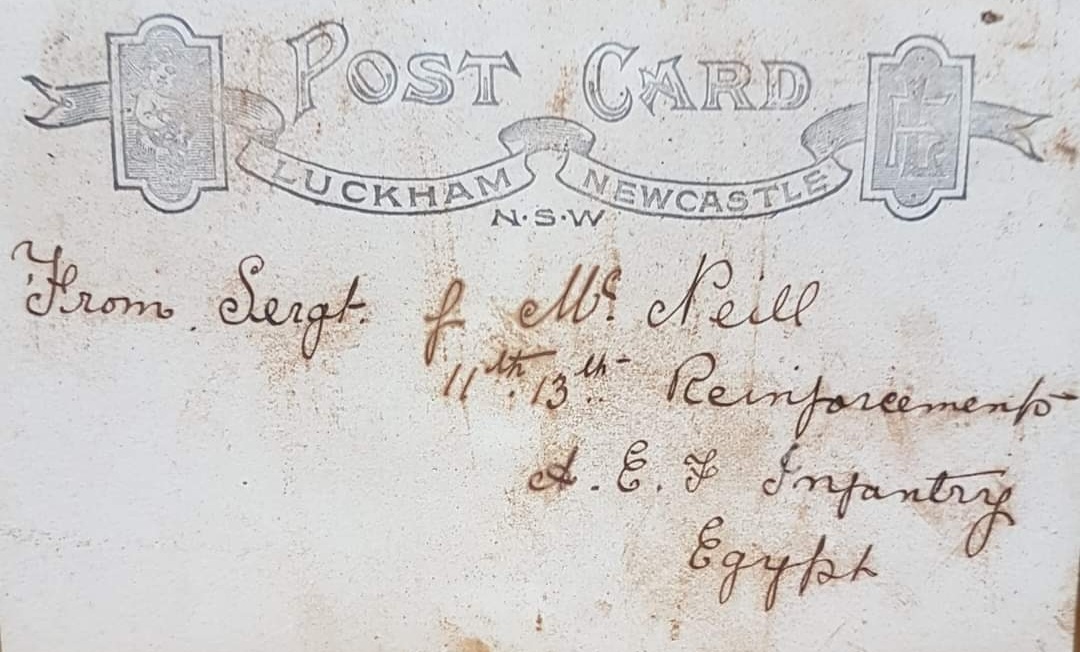 POST CARD
LUCKHAM NEWCASTLE
N·S·W
From Sergt. J Mc Neill
11th 13th Reinforcements
A. E. F Infantry
Egypt